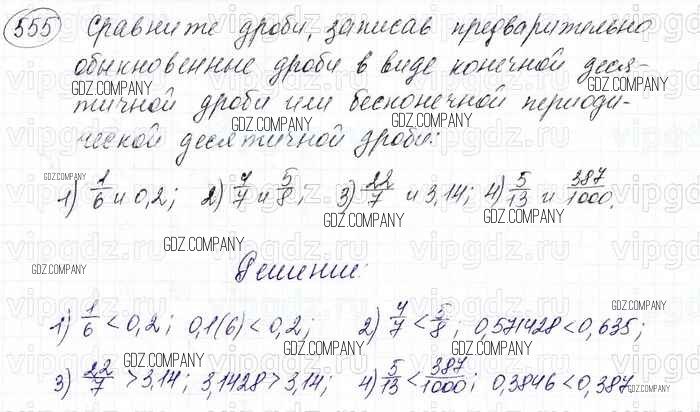 555 Сравните дроби, записав предварительно
обыкновенные дроби в виде конечной деся-
тичной дроби или бесконечной периоди-
ческой десятичной дроби:
1) 1/6 и 0,2; 2) 4/7 и 5/8; 3) 22/7 и 3,14; 4) 5/13 и 387/1000.
Решение:
1) 1/6 < 0,2; 0,1(6) < 0,2; 2) 4/7 < 5/8; 0,571428 < 0,635;
3) 22/7 > 3,14; 3,1428 > 3,14; 4) 5/13 < 387/1000; 0,3846 < 0,387
GDZ.COMPANY
vipgdz.ru